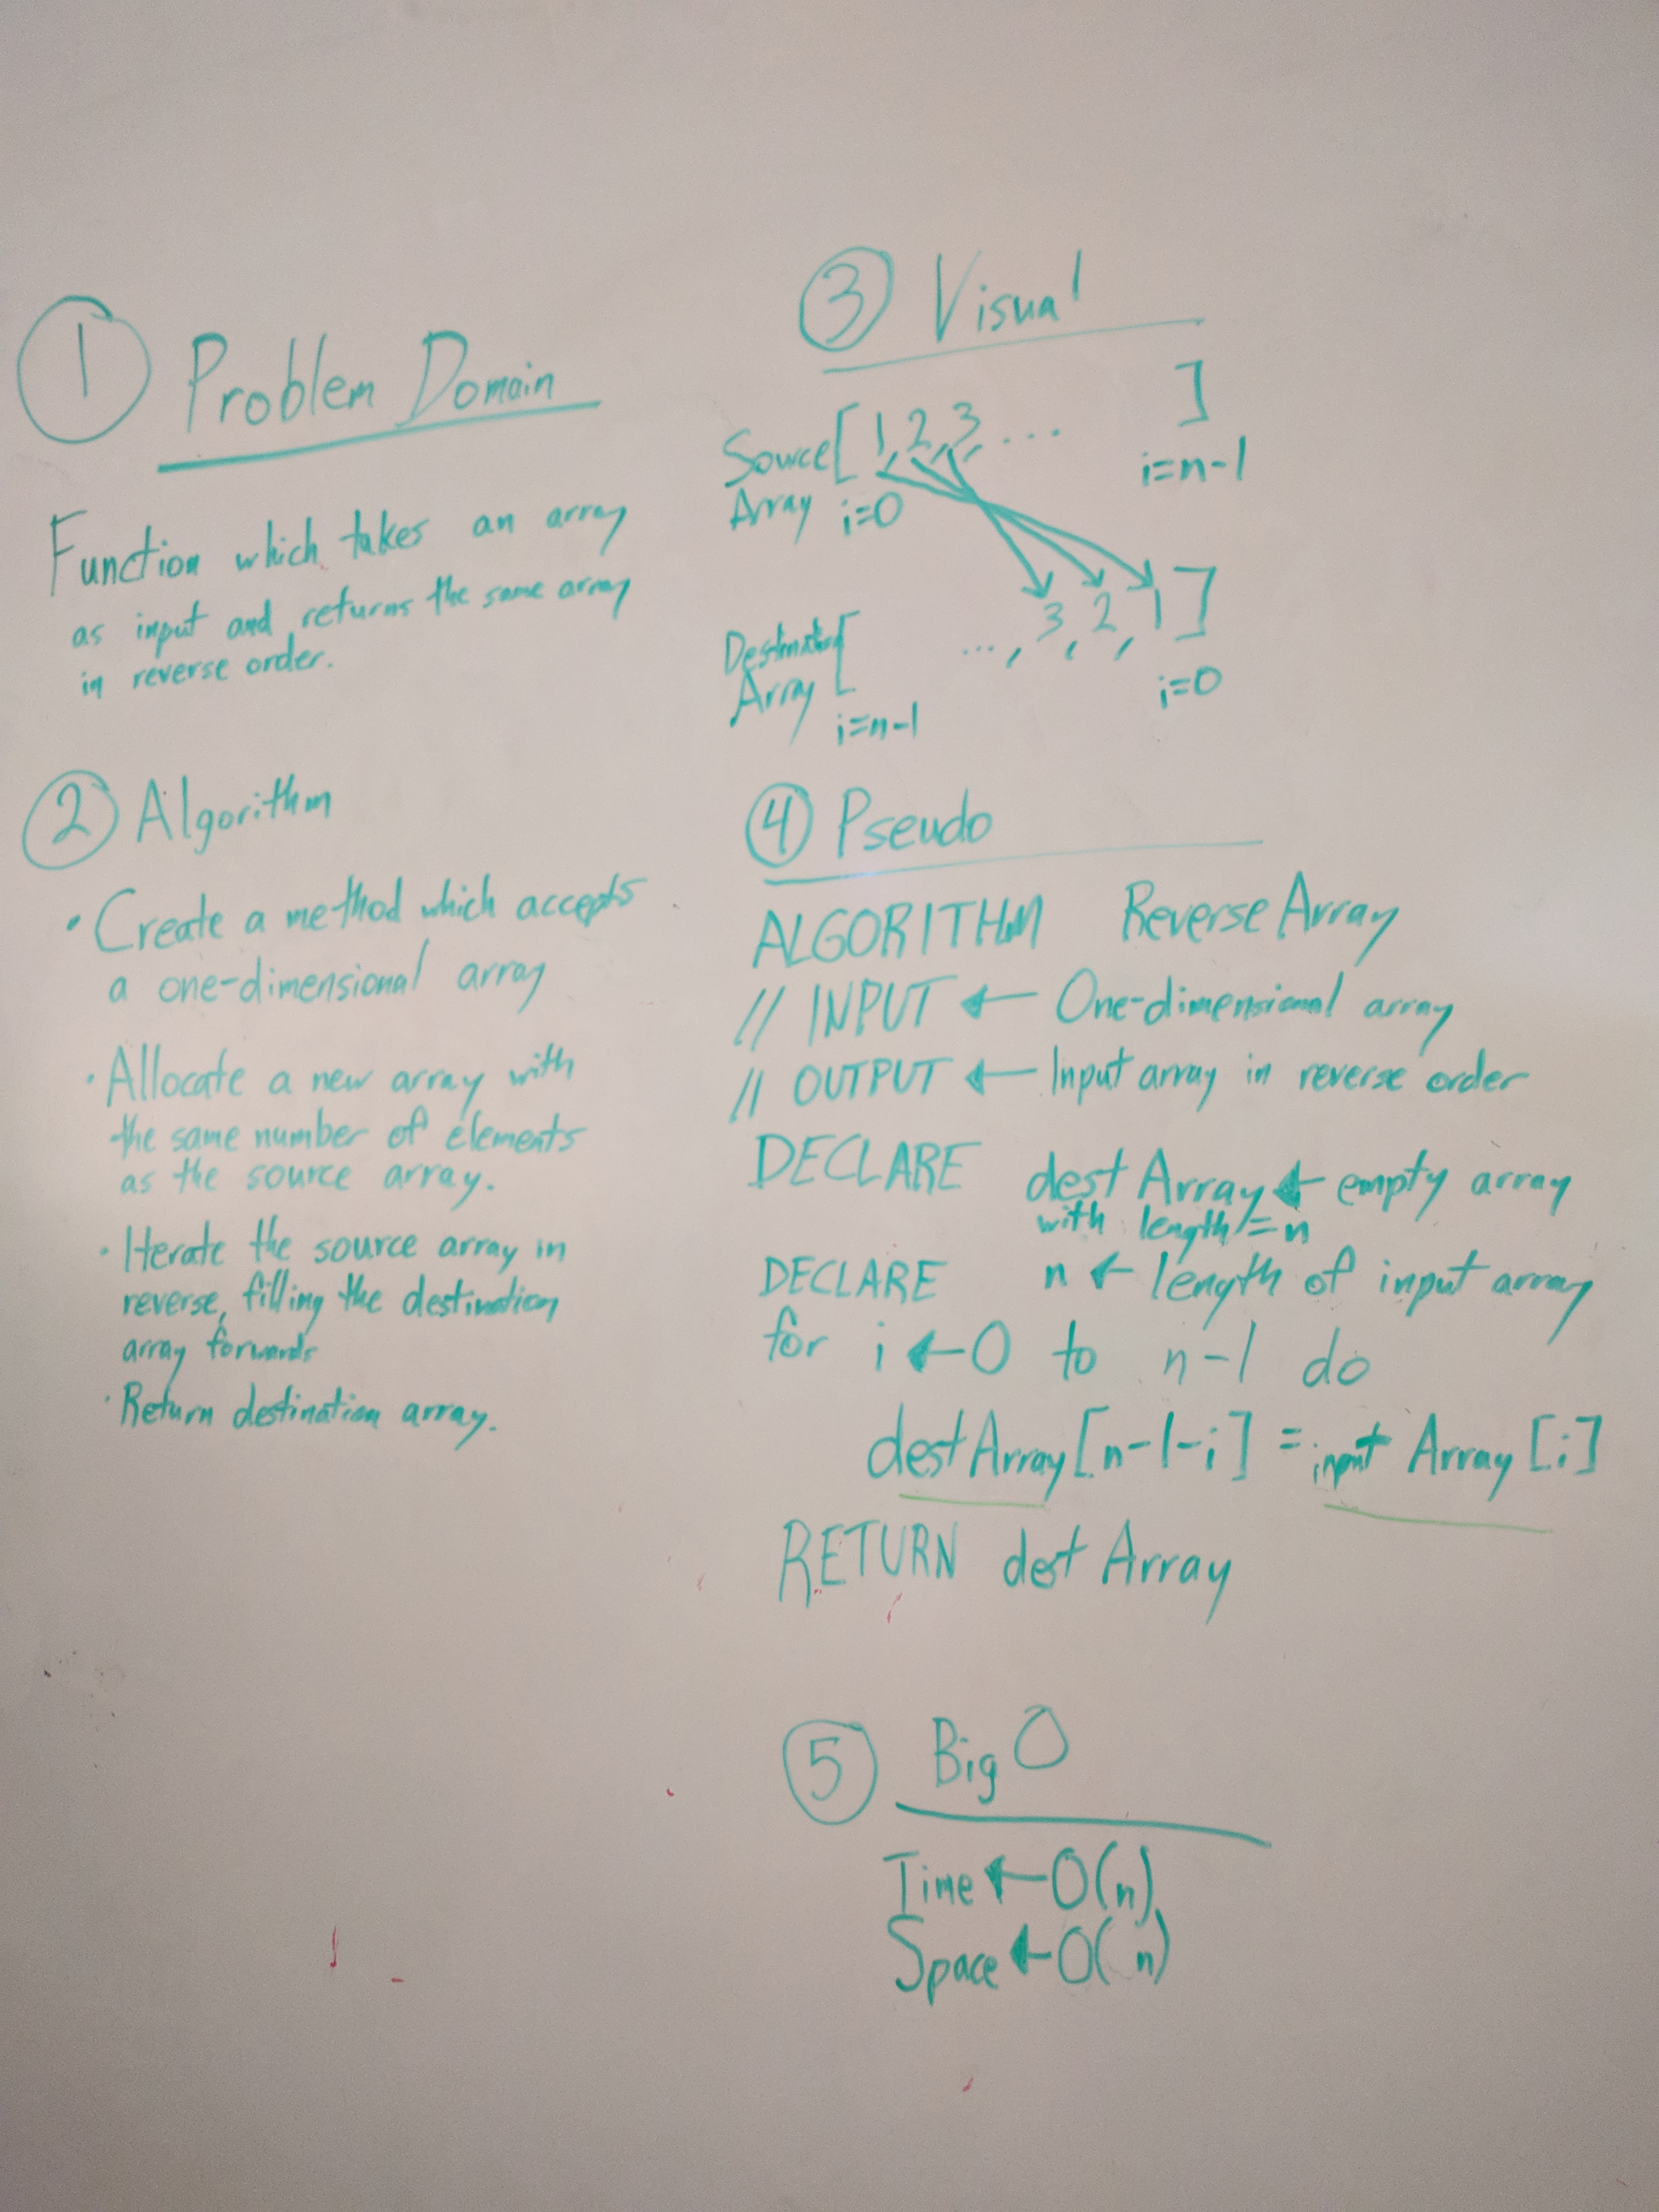 ① Problem Domain
Function which takes an array
as input and returns the same array
in reverse order.
② Algorithm
• Create a method which accepts
a one-dimensional array
• Allocate a new array with
the same number of elements
as the source array.
• Iterate the source array in
reverse, filling the destination
array forwards
• Return destination array.
③ Visual
Source [1, 2, 3, ... ]
Array i=0 i=n-1
Destination [ ..., 3, 2, 1 ]
Array i=n-1 i=0
④ Pseudo
ALGORITHM Reverse Array
// INPUT ← One-dimensional array
// OUTPUT ← Input array in reverse order
DECLARE dest Array ← empty array
with length = n
DECLARE n ← length of input array
for i ← 0 to n-1 do
dest Array [n-1-i] = input Array [i]
RETURN dest Array
⑤ Big O
Time ← O(n)
Space ← O(n)